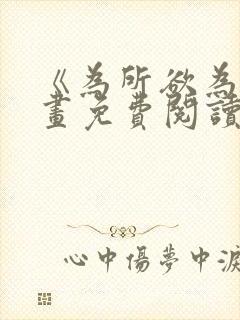 《為所欲為
畫免費閱讀
心中傷夢中淚